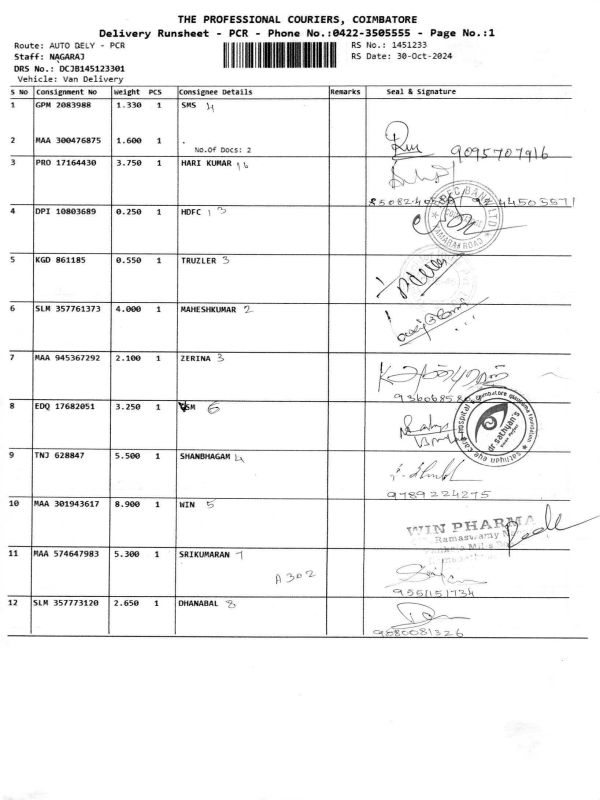 THE PROFESSIONAL COURIERS, COIMBATORE
Delivery Runsheet - PCR - Phone No.:0422-3505555 - Page No.:1
Route: AUTO DELY - PCR RS No.: 1451233
Staff: NAGARAJ RS Date: 30-Oct-2024
DRS No.: DCJB145123301
Vehicle: Van Delivery
S No Consignment No Weight PCS Consignee Details Remarks Seal & Signature
1 GPM 2083988 1.330 1 SMS 4
2 MAA 300476875 1.600 1 .
No.Of Docs: 2
9095707916
3 PRO 17164430 3.750 1 HARI KUMAR 16
4 DPI 10803689 0.250 1 HDFC 13
5 KGD 861185 0.550 1 TRUZLER 3
6 SLM 357761373 4.000 1 MAHESHKUMAR 2
7 MAA 945367292 2.100 1 ZERINA 3
8 EDQ 17682051 3.250 1 VSM 6
dr sathyan's
sathyan eye care hospital
9 TNJ 628847 5.500 1 SHANBHAGAM 4
9789224275
10 MAA 301943617 8.900 1 WIN 5
WIN PHARMA
Ramaswamy
11 MAA 574647983 5.300 1 SRIKUMARAN 7
A302
9551151734
12 SLM 357773120 2.650 1 DHANABAL 8
9880081326